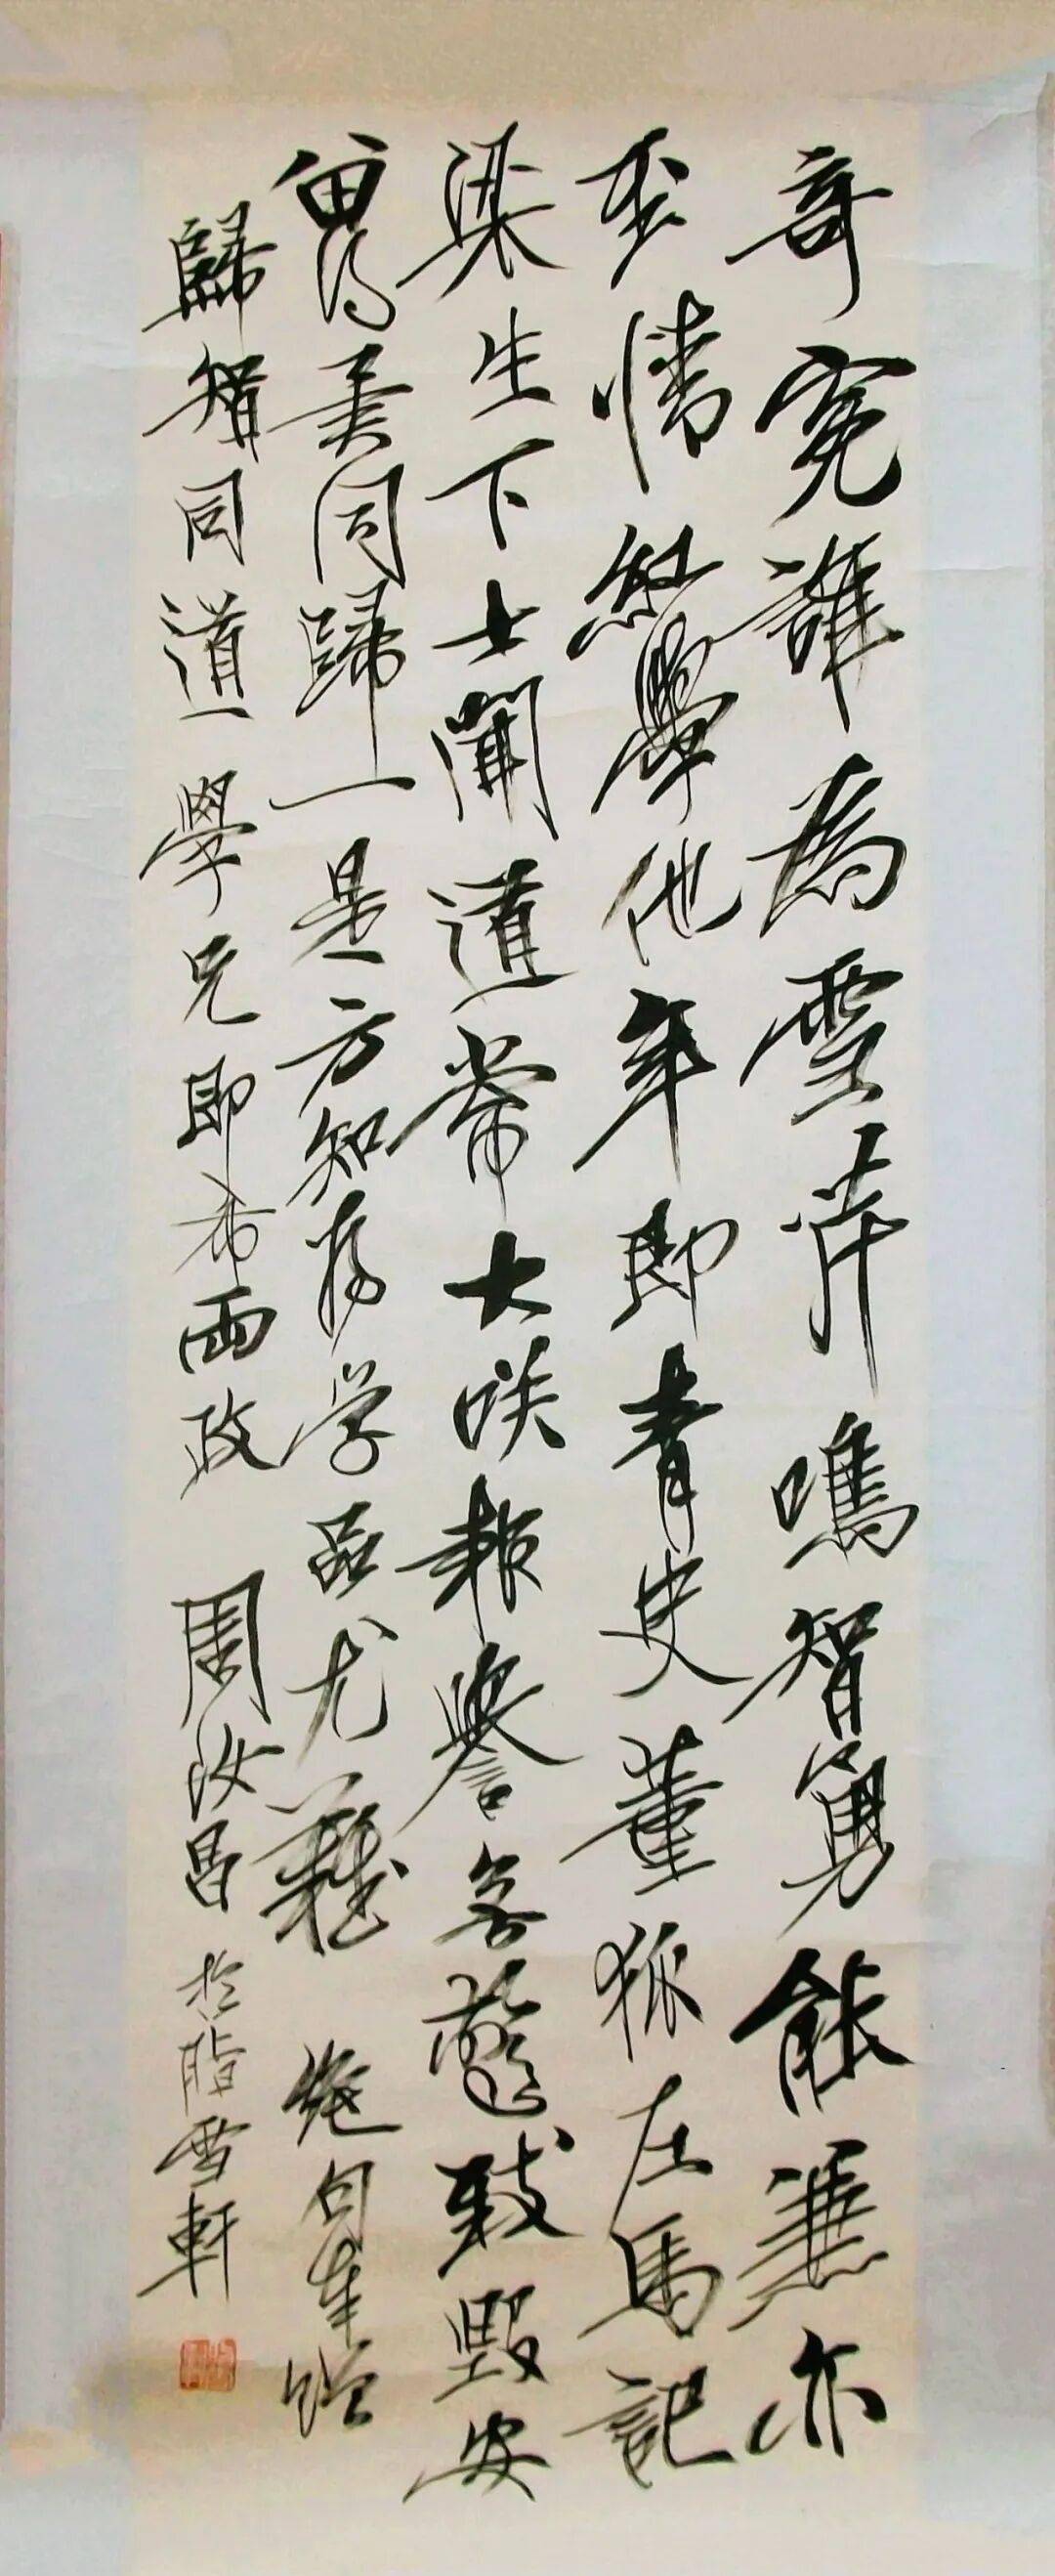 奇冤誰為雪芹鳴智勇能兼亦
至情紅學他年即青史董狐左馬記
梁生下士聞道常大咲報譽名致毀安
會得異同歸一是方知為学品尤難 絕句奉贈
歸智同道學兄即希兩政 周汝昌 於脂雪軒